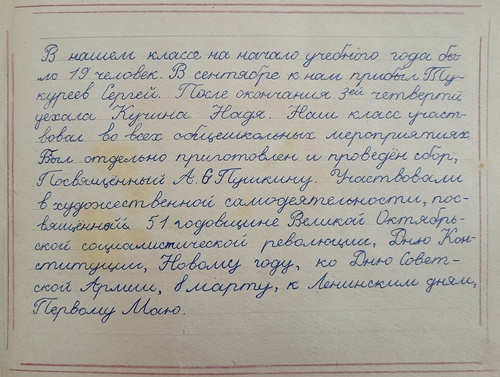 В нашем классе на начало учебного года бы-
ло 19 человек. В сентябре к нам прибыл Ту-
куреев Сергей. После окончания 3ей четверти
уехала Кучина Надя. Наш класс участ-
вовал во всех общешкольных мероприятиях.
Был отдельно приготовлен и проведён сбор,
Посвящённый А. С Пушкину. Участвовали
в художественной самодеятельности, пос-
вящённый 51 годовщине Великой Октябрь-
ской социалистической революции, Дню Кон-
ституции, Новому году, ко Дню Совет-
ской Армии, 8 марту, к Ленинским дням,
Первому Маю.